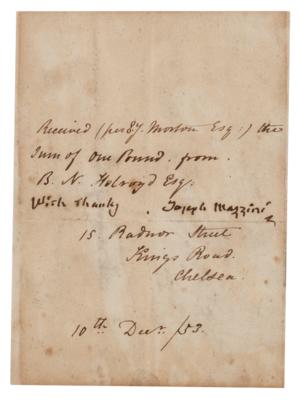 Received (per E. J. Morton Esq:) the
Sum of One Pound from
B. N. Holroyd Esq.
With thanks. Joseph Mazzini
15 Radnor Street
Kings Road.
Chelsea.
10th Decr. /53.